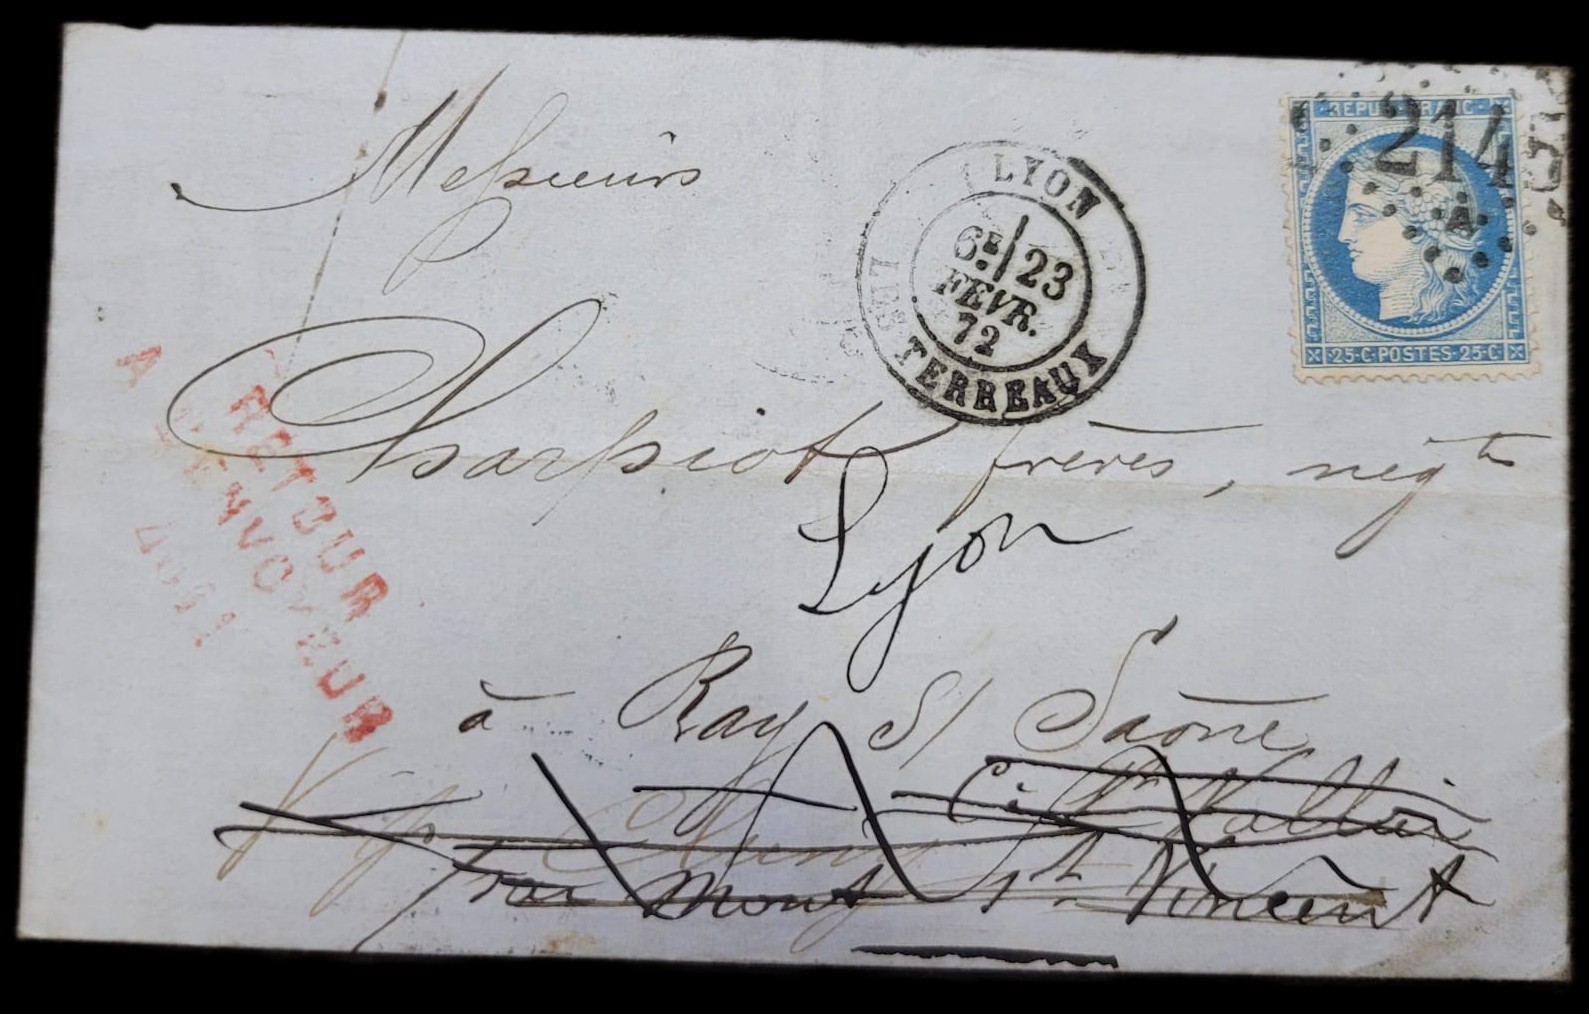 REPUB FRANC
2145
A
25·C·POSTES·25·C
LYON
6E/23
FEVR.
72
LES TERREAUX
Messieurs
Charpiot frères, negts
Lyon
RETOUR
A L'ENVOYEUR
à Ray s/ Saône
par Mont St Vincent